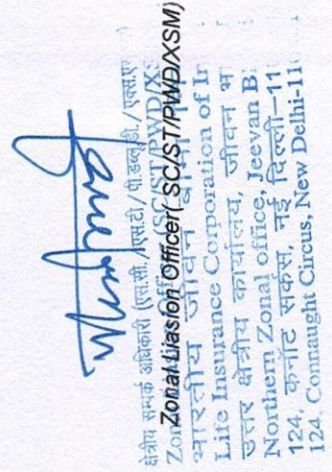 क्षेत्रीय सम्पर्क अधिकारी (एस.सी./एस.टी/पी.डब्लू.डी./एक्स.एस
Zonal Liasion Officer( SC/ST/PWD/XSM)
SC/ST/PWD/XS
भारतीय जीवन बीमा
Life Insurance Corporation of In
उत्तर क्षेत्रीय कार्यालय, जीवन भा
Northern Zonal office, Jeevan B
124, कनॉट सर्कस, नई दिल्ली-11
124, Connaught Circus, New Delhi-11